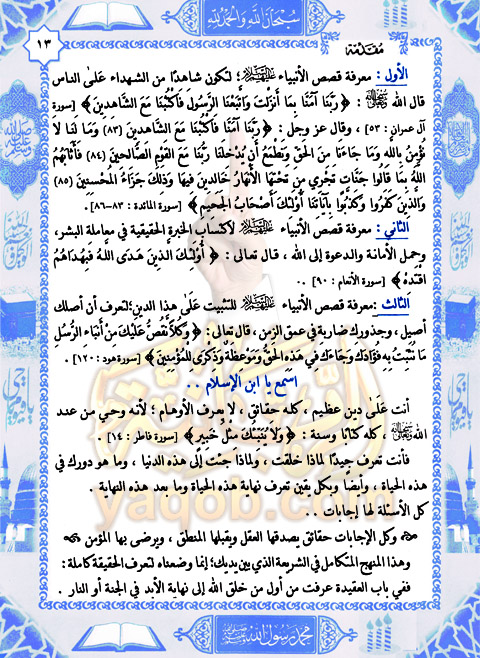 سبحان الله والحمد لله
مقدمة
١٣
الأول : معرفة قصص الأنبياء عليهم السلام ؛ لتكون شاهدًا من الشهداء عَلَىٰ الناس
قال الله تعالى : ﴿ رَبَّنَا آمَنَّا بِمَا أَنزَلْتَ وَاتَّبَعْنَا الرَّسُولَ فَاكْتُبْنَا مَعَ الشَّاهِدِينَ ﴾ [سورة
آل عمران : ٥٣] ، وقال عز وجل : ﴿ رَبَّنَا آمَنَّا فَاكْتُبْنَا مَعَ الشَّاهِدِينَ (٨٣) وَمَا لَنَا لَا
نُؤْمِنُ بِاللَّهِ وَمَا جَاءَنَا مِنَ الْحَقِّ وَنَطْمَعُ أَن يُدْخِلَنَا رَبُّنَا مَعَ الْقَوْمِ الصَّالِحِينَ (٨٤) فَأَثَابَهُمُ
اللَّهُ بِمَا قَالُوا جَنَّاتٍ تَجْرِي مِن تَحْتِهَا الْأَنْهَارُ خَالِدِينَ فِيهَا وَذَٰلِكَ جَزَاءُ الْمُحْسِنِينَ (٨٥)
وَالَّذِينَ كَفَرُوا وَكَذَّبُوا بِآيَاتِنَا أُولَٰئِكَ أَصْحَابُ الْجَحِيمِ ﴾ [سورة المائدة : ٨٣-٨٦] .
الثاني : معرفة قصص الأنبياء عليهم السلام لاكتساب الخبرة الحقيقية في معاملة البشر،
وحمل الأمانة والدعوة إلى الله ، قال تعالى : ﴿ أُولَٰئِكَ الَّذِينَ هَدَى اللَّهُ فَبِهُدَاهُمُ
اقْتَدِهْ ﴾ [سورة الأنعام : ٩٠] .
الثالث : معرفة قصص الأنبياء عليهم السلام للتثبيت عَلَىٰ هذا الدين؛ لتعرف أن أصلك
أصيل ، وجذورك ضاربة في عمق الزمن ، قال تعالى : ﴿ وَكُلًّا نَّقُصُّ عَلَيْكَ مِنْ أَنبَاءِ الرُّسُلِ
مَا نُثَبِّتُ بِهِ فُؤَادَكَ وَجَاءَكَ فِي هَٰذِهِ الْحَقُّ وَمَوْعِظَةٌ وَذِكْرَىٰ لِلْمُؤْمِنِينَ ﴾ [سورة هود : ١٢٠] .
اسمع يا ابن الإسلام . .
أنت عَلَىٰ دين عظيم ، كله حقائق ، لا يعرف الأوهام ؛ لأنه وحي من عند
الله تعالى ، كله كتابًا وسنة : ﴿ وَلَا يُنَبِّئُكَ مِثْلُ خَبِيرٍ ﴾ [سورة فاطر : ١٤] .
فأنت تعرف جيدًا لماذا خلقت ، ولماذا جئت إلى هذه الدنيا ، وما هو دورك في
هذه الحياة ، وأيضًا وبكل يقين تعرف نهاية هذه الحياة وما بعد هذه النهاية .
كل الأسئلة لها إجابات . .
وكل الإجابات حقائق يصدقها العقل ويقبلها المنطق ، ويرضى بها المؤمن
وهذا المنهج المتكامل في الشريعة الذي بين يديك؛ إنما وضعناه لتعرف الحقيقة كاملة :
ففي باب العقيدة عرفت من أول من خلق الله إلى نهاية الأبد في الجنة أو النار .
yaqob.com
محمد رسول الله